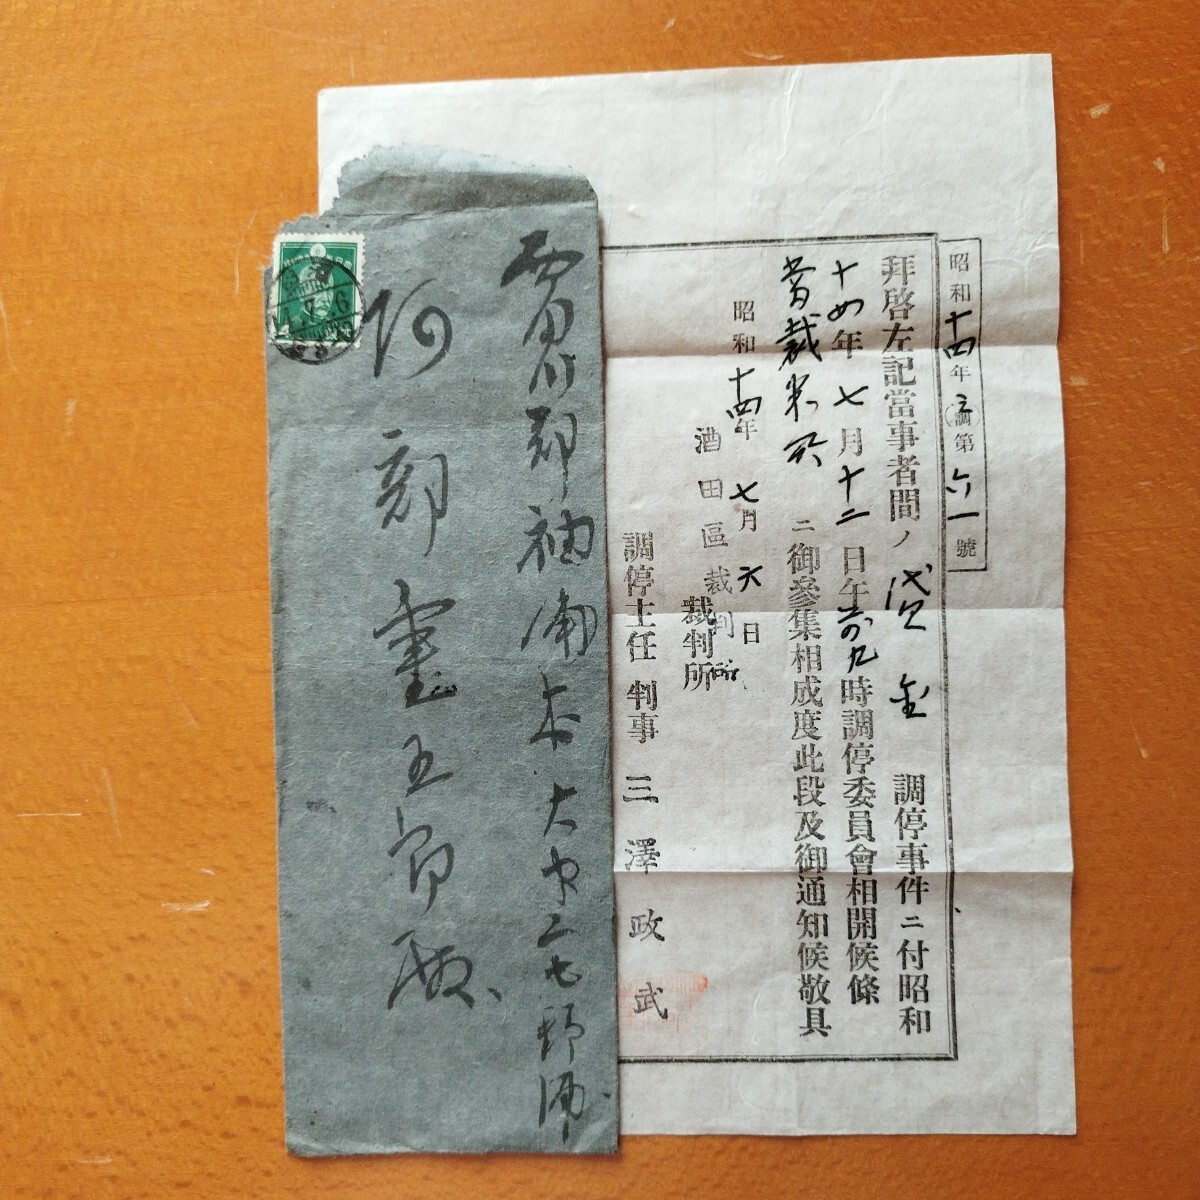 昭和十四年(調)第六一號
拜啓左記當事者間ノ貸金調停事件ニ付昭和
十四年七月十二日午前九時調停委員會相開候條
當裁判所ニ御參集相成度此段及御通知候敬具
昭和十四年七月六日
酒田區裁判所
裁判所
調停主任判事三澤政武
飽海郡袖浦村大字
阿部重五郎殿